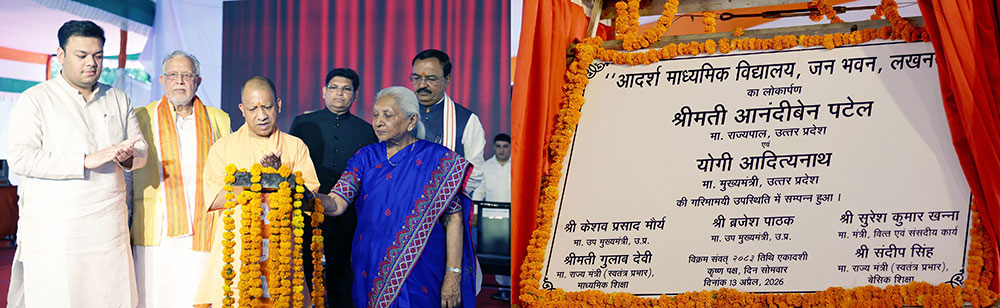 "आदर्श माध्यमिक विद्यालय, जन भवन, लखन
का लोकार्पण
श्रीमती आनंदीबेन पटेल
मा. राज्यपाल, उत्तर प्रदेश
एवं
योगी आदित्यनाथ
मा. मुख्यमंत्री, उत्तर प्रदेश
की गरिमामयी उपस्थिति में सम्पन्न हुआ ।
श्री केशव प्रसाद मौर्य
मा. उप मुख्यमंत्री, उ.प्र.
श्रीमती गुलाब देवी
मा. राज्य मंत्री (स्वतंत्र प्रभार),
माध्यमिक शिक्षा
श्री ब्रजेश पाठक
मा. उप मुख्यमंत्री, उ.प्र.
विक्रम संवत् २०८३ तिथि एकादशी
कृष्ण पक्ष, दिन सोमवार
दिनांक 13 अप्रैल, 2026
श्री सुरेश कुमार खन्ना
मा. मंत्री, वित्त एवं संसदीय कार्य
श्री संदीप सिंह
मा. राज्य मंत्री (स्वतंत्र प्रभार),
बेसिक शिक्षा